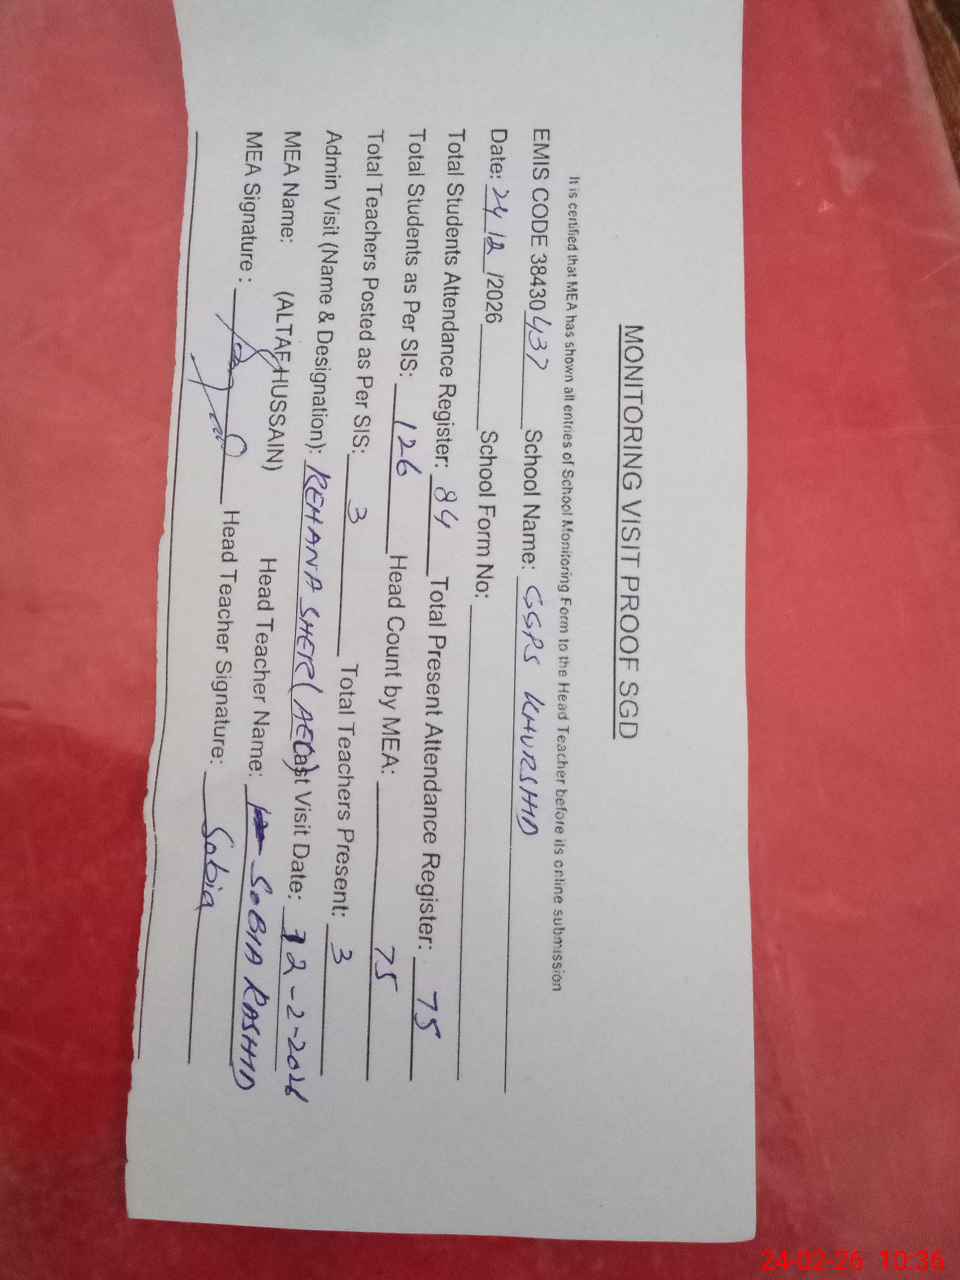 MONITORING VISIT PROOF SGD
It is certified that MEA has shown all entries of School Monitoring Form to the Head Teacher before its online submission
EMIS CODE 38430437 School Name: GGPS KHURSHID
Date: 24/2/2026 School Form No:
Total Students Attendance Register: 84 Total Present Attendance Register: 75
Total Students as Per SIS: 126 Head Count by MEA: 75
Total Teachers Posted as Per SIS: 3 Total Teachers Present: 3
Admin Visit (Name & Designation): REHANA SHER (AEO) Last Visit Date: 12-2-2026
MEA Name: (ALTAF HUSSAIN) Head Teacher Name: SOBIA RASHID
MEA Signature : Head Teacher Signature: Sobia
24-02-26 10:36